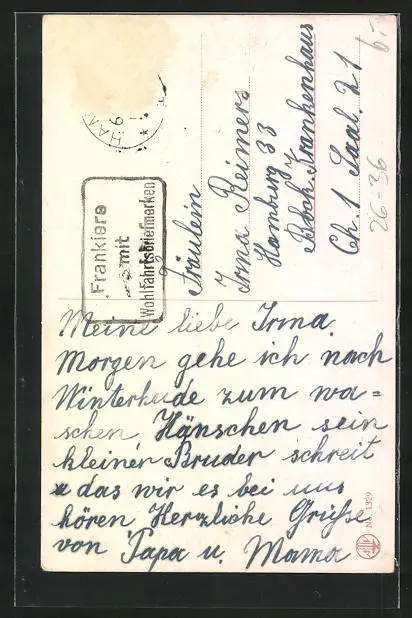 HAM
Frankiere
mit
Wohlfahrtsbriefmarken
Fräulein
Irma Reimers
Hamburg 33
Krankenhaus
Ch. 1 Saal. 21
26-36
Meine liebe Irma.
Morgen gehe ich nach
Winterhude zum wa=
schen Hänschen sein
kleiner Bruder schreit
das wir es bei uns
hören Herzliche Grüße
von Papa u. Mama
No. 1329